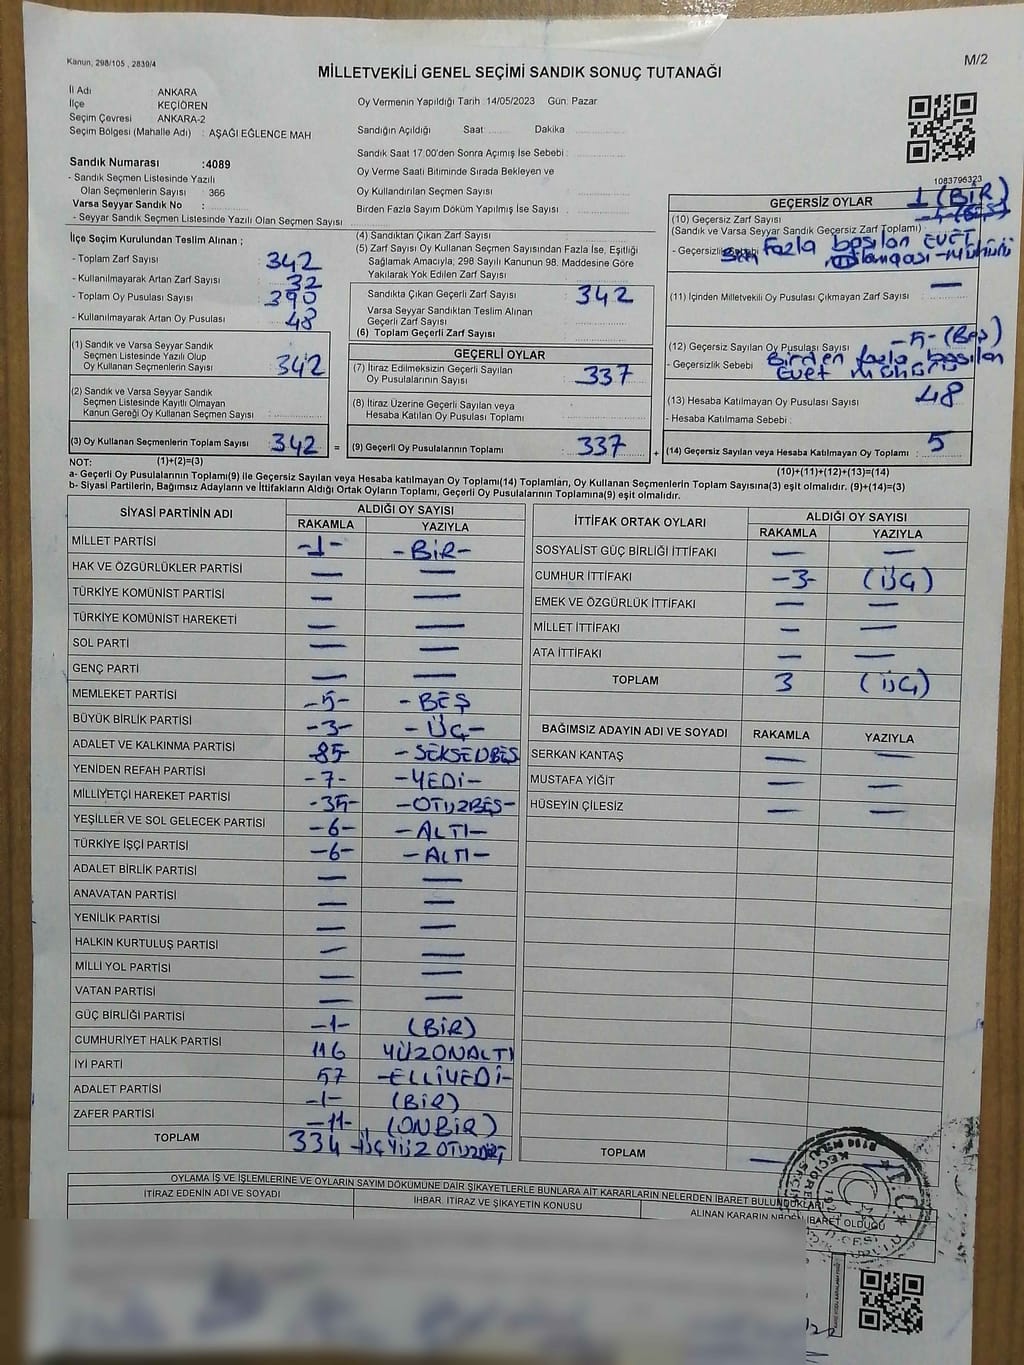 Kanun, 298/105 , 2839/4
M/2
MİLLETVEKİLİ GENEL SEÇİMİ SANDIK SONUÇ TUTANAĞI
İl Adı : ANKARA
İlçe KEÇİÖREN
Seçim Çevresi ANKARA-2
Seçim Bölgesi (Mahalle Adı) : AŞAĞI EĞLENCE MAH
Sandık Numarası :4089
- Sandık Seçmen Listesinde Yazılı
Olan Seçmenlerin Sayısı : 366
Varsa Seyyar Sandık No :
- Seyyar Sandık Seçmen Listesinde Yazılı Olan Seçmen Sayısı
Oy Vermenin Yapıldığı Tarih 14/05/2023 Gün: Pazar
Sandığın Açıldığı Saat: Dakika
Sandık Saat 17:00'den Sonra Açımış İse Sebebi :
Oy Verme Saati Bitiminde Sırada Bekleyen ve
Oy Kullandırılan Seçmen Sayısı
Birden Fazla Sayım Döküm Yapılmış İse Sayısı :
1083796323
İlçe Seçim Kurulundan Teslim Alınan ;
- Toplam Zarf Sayısı 342
- Kullanılmayarak Artan Zarf Sayısı 32
- Toplam Oy Pusulası Sayısı 390
- Kullanılmayarak Artan Oy Pusulası 48
(1) Sandık ve Varsa Seyyar Sandık
Seçmen Listesinde Yazılı Olup
Oy Kullanan Seçmenlerin Sayısı 342
(2) Sandık ve Varsa Seyyar Sandık
Seçmen Listesinde Kayıtlı Olmayan
Kanun Gereği Oy Kullanan Seçmen Sayısı :
(3) Oy Kullanan Seçmenlerin Toplam Sayısı 342 =
(4) Sandıktan Çıkan Zarf Sayısı
(5) Zarf Sayısı Oy Kullanan Seçmen Sayısından Fazla İse, Eşitliği
Sağlamak Amacıyla, 298 Sayılı Kanunun 98. Maddesine Göre
Yakılarak Yok Edilen Zarf Sayısı
Sandıkta Çıkan Geçerli Zarf Sayısı 342
Varsa Seyyar Sandıktan Teslim Alınan
Geçerli Zarf Sayısı
(6) Toplam Geçerli Zarf Sayısı
GEÇERLİ OYLAR
(7) İtiraz Edilmeksizin Geçerli Sayılan
Oy Pusulalarının Sayısı : 337
(8) İtiraz Üzerine Geçerli Sayılan veya
Hesaba Katılan Oy Pusulası Toplamı
(9) Geçerli Oy Pusulalarının Toplamı : 337 +
GEÇERSİZ OYLAR 1 (BİR)
(10) Geçersiz Zarf Sayısı
(Sandık ve Varsa Seyyar Sandık Geçersiz Zarf Toplamı) :
- Geçersizlik Sebebi Fazla basılan EVET
mühürü
(11) İçinden Milletvekili Oy Pusulası Çıkmayan Zarf Sayısı —
(12) Geçersiz Sayılan Oy Pusulası Sayısı -5- (Beş)
- Geçersizlik Sebebi Birden fazla basılan
Evet mührü
(13) Hesaba Katılmayan Oy Pusulası Sayısı 48
- Hesaba Katılmama Sebebi :
(14) Geçersiz Sayılan veya Hesaba Katılmayan Oy Toplamı : 5
NOT: (1)+(2)=(3) (10)+(11)+(12)+(13)=(14)
a- Geçerli Oy Pusulasının Toplamı(9) ile Geçersiz Sayılan veya Hesaba katılmayan Oy Toplamı(14) Toplamları, Oy Kullanan Seçmenlerin Toplam Sayısına(3) eşit olmalıdır. (9)+(14)=(3)
b- Siyasi Partilerin, Bağımsız Adayların ve İttifakların Aldığı Ortak Oyların Toplamı, Geçerli Oy Pusulasının Toplamına(9) eşit olmalıdır.
SİYASİ PARTİNİN ADI ALDIĞI OY SAYISI
RAKAMLA YAZIYLA
MİLLET PARTİSİ -1- -BİR-
HAK VE ÖZGÜRLÜKLER PARTİSİ — —
TÜRKİYE KOMÜNİST PARTİSİ — —
TÜRKİYE KOMÜNİST HAREKETİ — —
SOL PARTİ — —
GENÇ PARTİ — —
MEMLEKET PARTİSİ -5- -BEŞ
BÜYÜK BİRLİK PARTİSİ -3- -ÜÇ-
ADALET VE KALKINMA PARTİSİ -85 -SEKSENBEŞ
YENİDEN REFAH PARTİSİ -7- -YEDİ-
MİLLİYETÇİ HAREKET PARTİSİ -35- -OTUZBEŞ-
YEŞİLLER VE SOL GELECEK PARTİSİ -6- -ALTI-
TÜRKİYE İŞÇİ PARTİSİ -6- -ALTI-
ADALET BİRLİK PARTİSİ — —
ANAVATAN PARTİSİ — —
YENİLİK PARTİSİ — —
HALKIN KURTULUŞ PARTİSİ — —
MİLLİ YOL PARTİSİ — —
VATAN PARTİSİ — —
GÜÇ BİRLİĞİ PARTİSİ -1- (BİR)
CUMHURİYET HALK PARTİSİ 116 YÜZONALTI
İYİ PARTİ 57 -ELLİYEDİ-
ADALET PARTİSİ -1- (BİR)
ZAFER PARTİSİ -11- (ONBİR)
TOPLAM 334 -ÜÇYÜZ OTUZDÖRT
İTTİFAK ORTAK OYLARI ALDIĞI OY SAYISI
RAKAMLA YAZIYLA
SOSYALİST GÜÇ BİRLİĞİ İTTİFAKI — —
CUMHUR İTTİFAKI -3- (ÜÇ)
EMEK VE ÖZGÜRLÜK İTTİFAKI — —
MİLLET İTTİFAKI — —
ATA İTTİFAKI — —
TOPLAM 3 (ÜÇ)
BAĞIMSIZ ADAYIN ADI VE SOYADI RAKAMLA YAZIYLA
SERKAN KANTAŞ — —
MUSTAFA YİĞİT — —
HÜSEYİN ÇİLESİZ — —
TOPLAM —
OYLAMA İŞ VE İŞLEMLERİNE VE OYLARIN SAYIM DÖKÜMÜNE DAİR ŞİKAYETLERLE BUNLARA AİT KARARLARIN NELERDEN İBARET BULUNDUKLARI
İTİRAZ EDENİN ADI VE SOYADI İHBAR, İTİRAZ VE ŞİKAYETİN KONUSU ALINAN KARARIN NEDEN İBARET OLDUĞU
T.C.